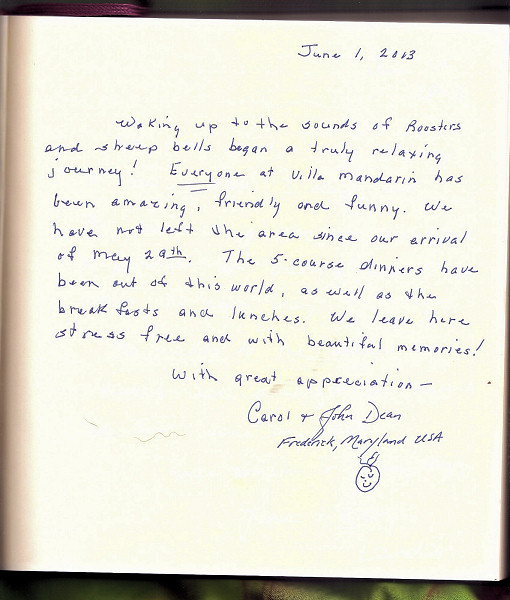 June 1, 2013
Waking up to the sounds of Roosters
and sheep bells began a truly relaxing
journey! Everyone at Villa Mandarin has
been amazing, friendly and funny. We
have not left the area since our arrival
of May 29th. The 5-course dinners have
been out of this world, as well as the
breakfasts and lunches. We leave here
stress free and with beautiful memories!
With great appreciation—
Carol & John Dean
Frederick, Maryland USA